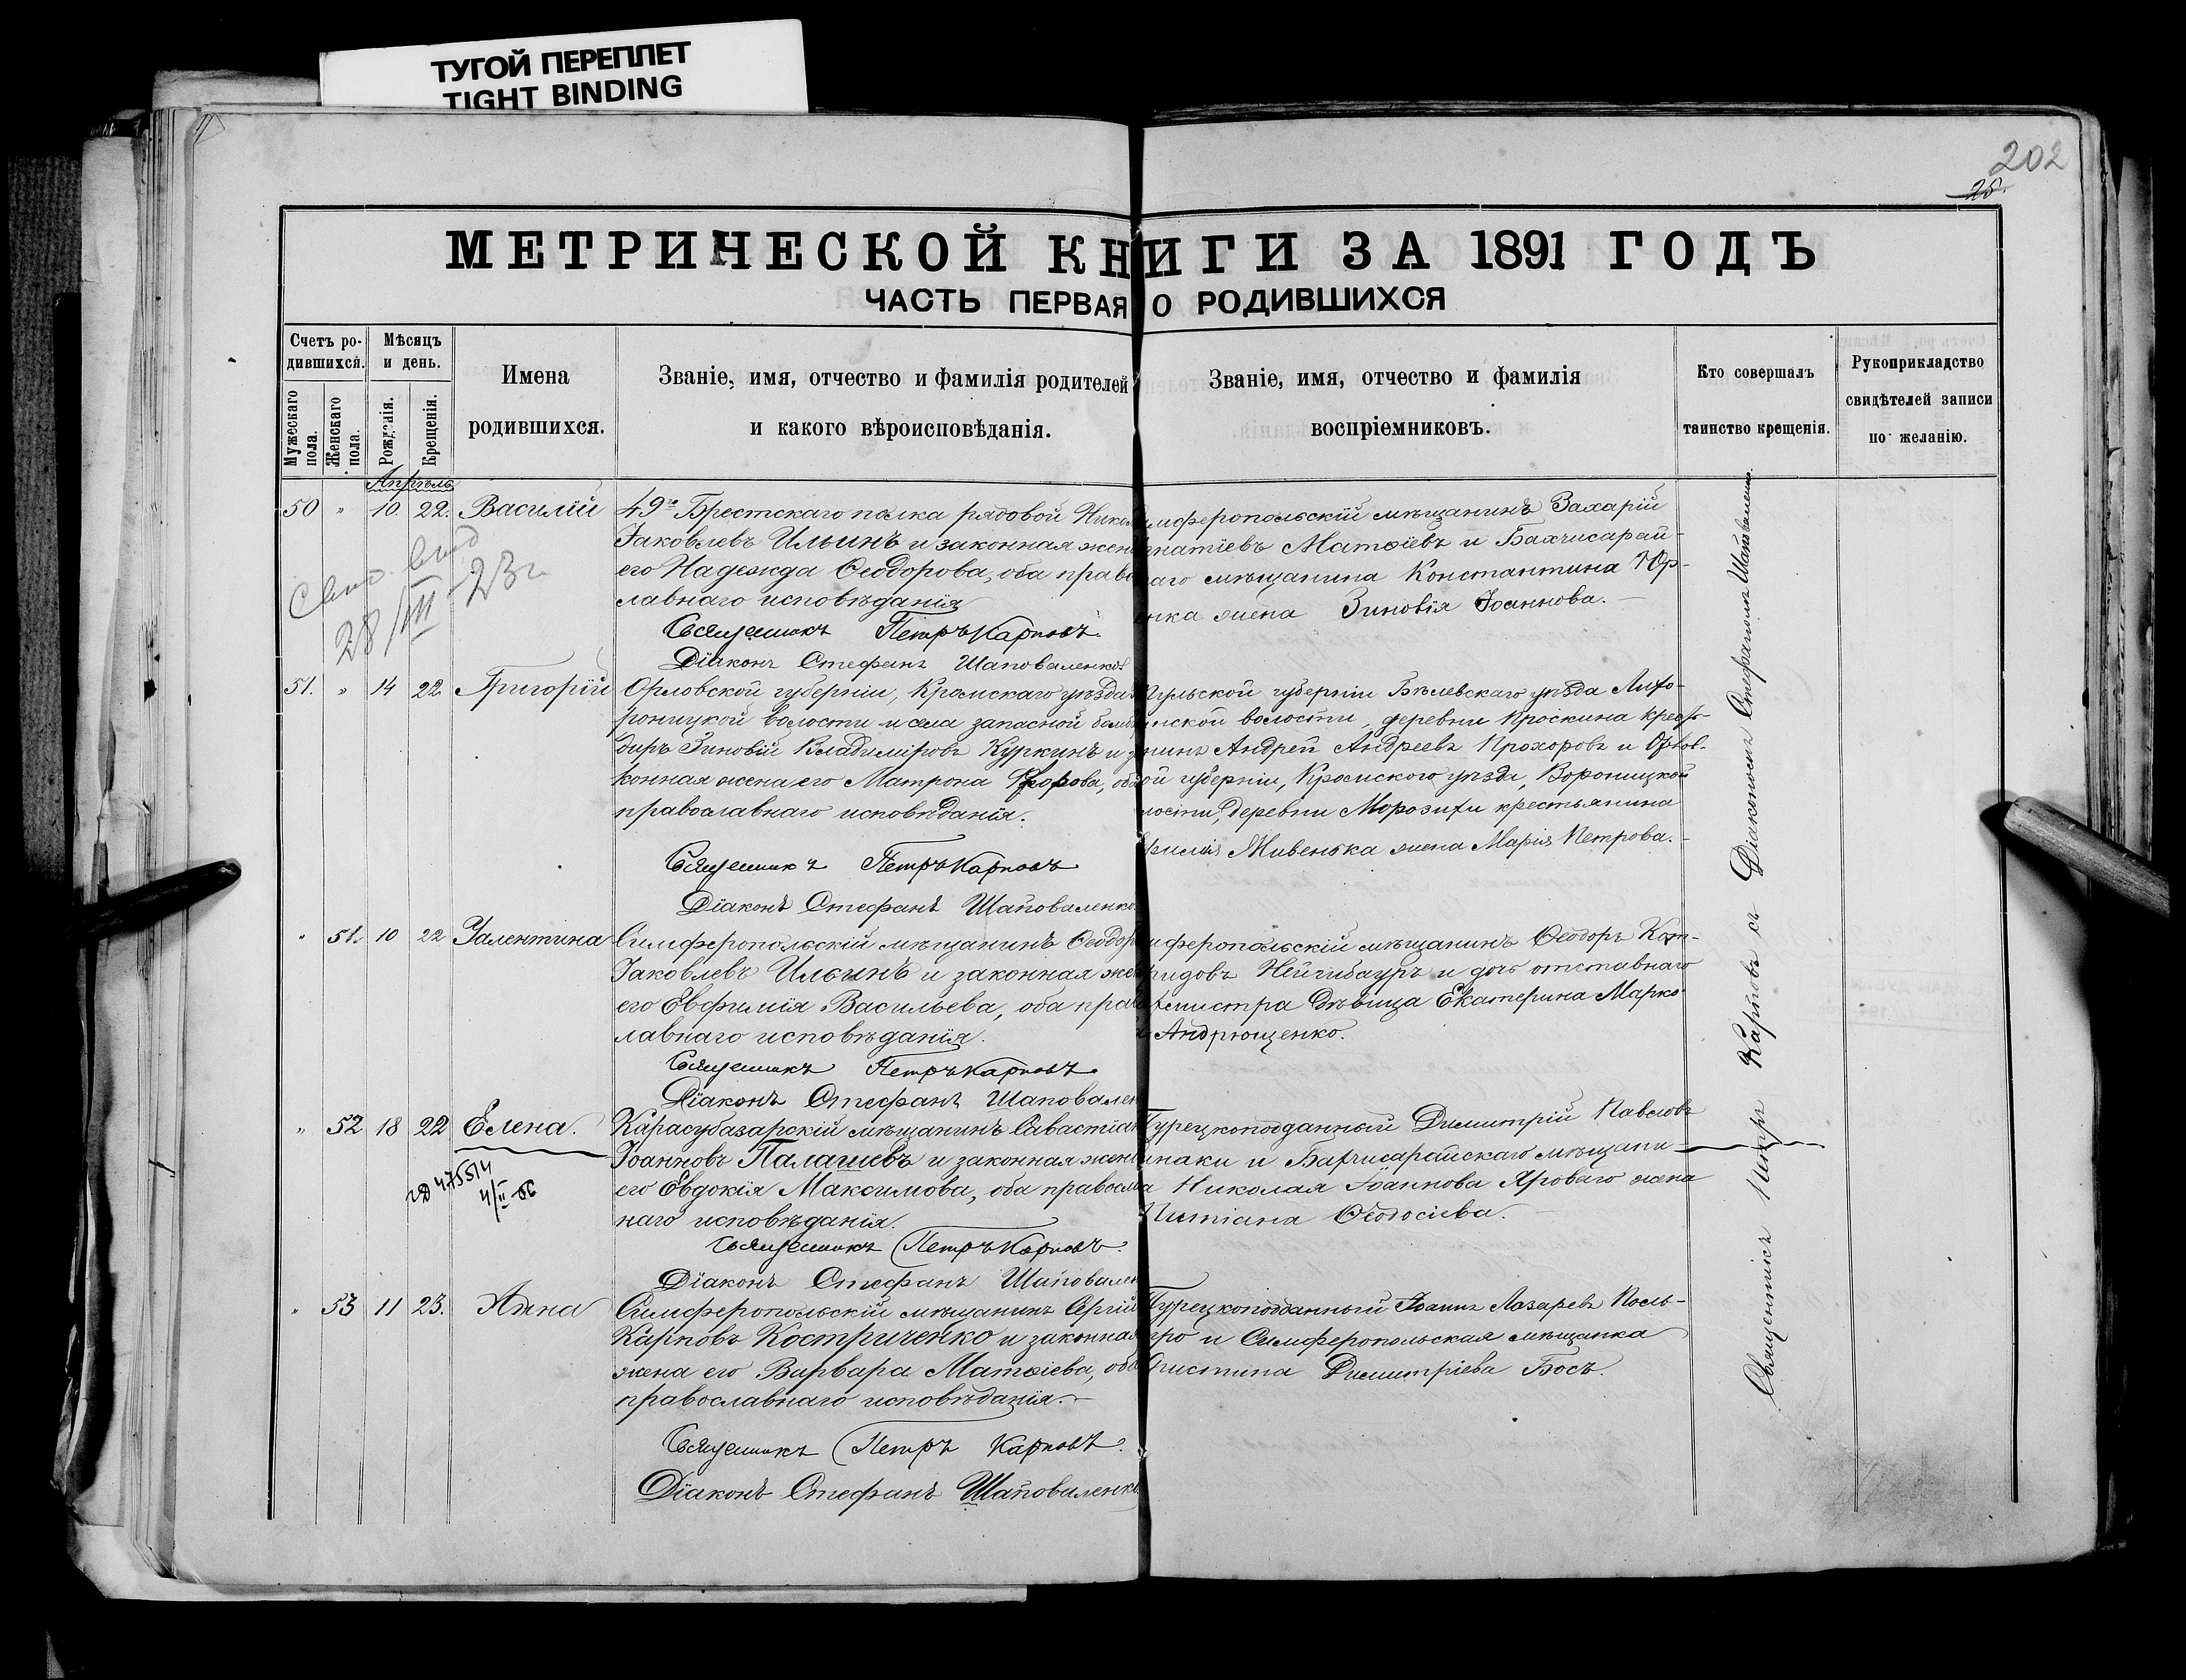 ТУГОЙ ПЕРЕПЛЕТ
TIGHT BINDING
202
25.
МЕТРИЧЕСКОЙ КНИГИ ЗА 1891 ГОДЪ
ЧАСТЬ ПЕРВАЯ О РОДИВШИХСЯ
Счетъ ро-
дившихся.
Мужескаго пола.
Женскаго пола.
Мѣсяцъ
и день.
Рожденія.
Крещенія.
Имена
родившихся.
Званіе, имя, отчество и фамилія родителей
и какого вѣроисповѣданія.
Званіе, имя, отчество и фамилія
воспріемниковъ.
Кто совершалъ
таинство крещенія.
Рукоприкладство
свидѣтелей записи
по желанію.
Апрѣль
50 " 10. 22. Василій
49го Брестскаго полка рядовой Никол
Іаковлевъ Ильинъ и законная жен
его Надежда Ѳеодорова, оба право
лавнаго исповѣданія
Священникъ Петръ Карповъ.
Діаконъ Стефанъ Шаповаленко
имферопольскій мѣщанинъ Захарій
гнатіевъ Матѳіевъ и Бахчисарай-
аго мѣщанина Константина Юр-
енка жена Зиновія Іоаннова.
28/III 23 г
51. " 14 22 Григорій
Орловской губерніи, Кромскаго уѣзда
роницкой волости и села запасной бомба
диръ Зиновій Владиміровъ Куркинъ и з
конная жена его Матрона, оба
православнаго исповѣданія.
Священникъ Петръ Карповъ
Діаконъ Стефанъ Шаповаленко
Тульской губерніи Бѣлевскаго уѣзда
нской волости, деревни Проскина кресть-
нинъ Андрей Андреевъ Прохоровъ и Орлов-
ой губерніи, Кромского уѣзда, Вороницкой
лости, деревни Морозихи крестьянина
жена Марія Петрова.
" 51. 10 22 Валентина
Симферопольскій мѣщанинъ Ѳеодоръ
Іаковлевъ Ильинъ и законная жен
его Евфимія Васильева, оба прав
лавнаго исповѣданія.
Священникъ Петръ Карповъ
Діаконъ Стефанъ Шаповален
мферопольскій мѣщанинъ Ѳеодоръ
Нейгибауръ и дочь отставнаго
хмистра дѣвица Екатерина Марко
а Андрющенко.
" 52 18 22 Елена.
Карасубазарскій мѣщанинъ Савастіан
Іоанновъ Палашевъ и законная жен
его Евдокія Максимова, оба правосла
наго исповѣданія.
Священникъ Петръ Карповъ.
Діаконъ Стефанъ Шаповален
Турецкоподданный Димитрій Павловъ
наки и Бахчисарайскаго мѣщани-
а Николая Іоаннова Яроваго жена
Ѳеодосіева.
475514
4/II-56
" 53 11 23. Анна
Симферопольскій мѣщанинъ Сергій
Карповъ Костриченко и законная
жена его Варвара Матѳіева, оба
православнаго исповѣданія.
Священникъ Петръ Карповъ.
Діаконъ Стефанъ Шаповаленко
Турецкоподданный Іоаннъ Лазаревъ Поль-
гро и Симферопольская мѣщанка
Христина Димитріева Босъ.
Священникъ Петръ Карповъ съ Діакономъ Стефаномъ Шаповаленко.